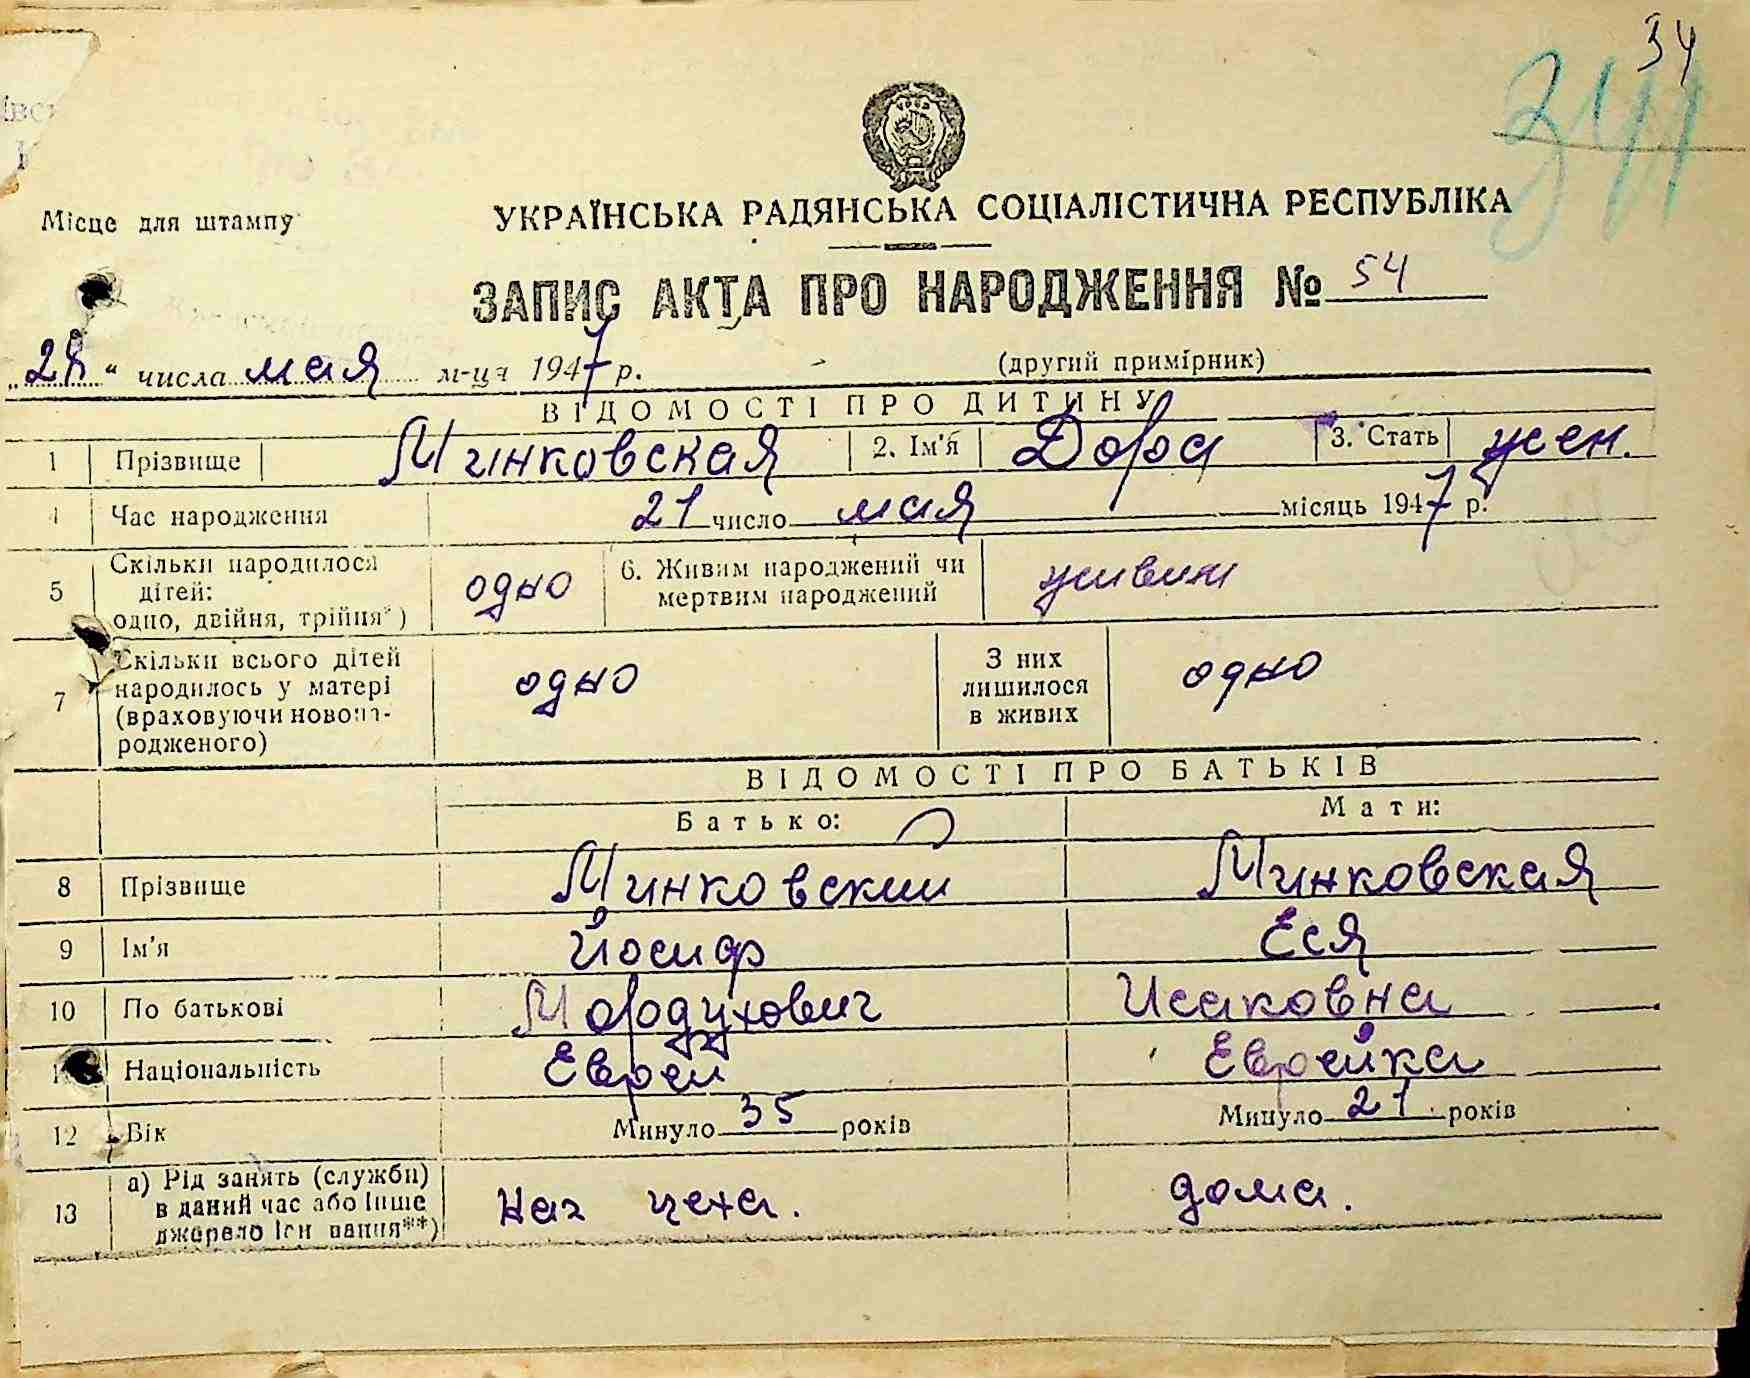 34
341
Місце для штампу
УКРАЇНСЬКА РАДЯНСЬКА СОЦІАЛІСТИЧНА РЕСПУБЛІКА
ЗАПИС АКТА ПРО НАРОДЖЕННЯ № 54
„28“ числа мая м-ця 1947 р. (другий примірник)
ВІДОМОСТІ ПРО ДИТИНУ
1 Прізвище Минковская 2. Ім'я Дора 3. Стать жен.
4 Час народження 21 число мая місяць 1947 р.
5 Скільки народилося дітей: одно, двійня, трійня*) одно 6. Живим народжений чи мертвим народжений живим
7 Скільки всього дітей народилось у матері (враховуючи новона-родженого) одно З них лишилося в живих одно
ВІДОМОСТІ ПРО БАТЬКІВ
Батько: Мати:
8 Прізвище Минковский Минковская
9 Ім'я Йосиф Еся
10 По батькові Мордухович Исаковна
Національність Еврей Еврейка
12 Вік Минуло 35 років Минуло 21 років
13 а) Рід занять (служби) в даний час або інше джерело існування**) нач цеха. дома.